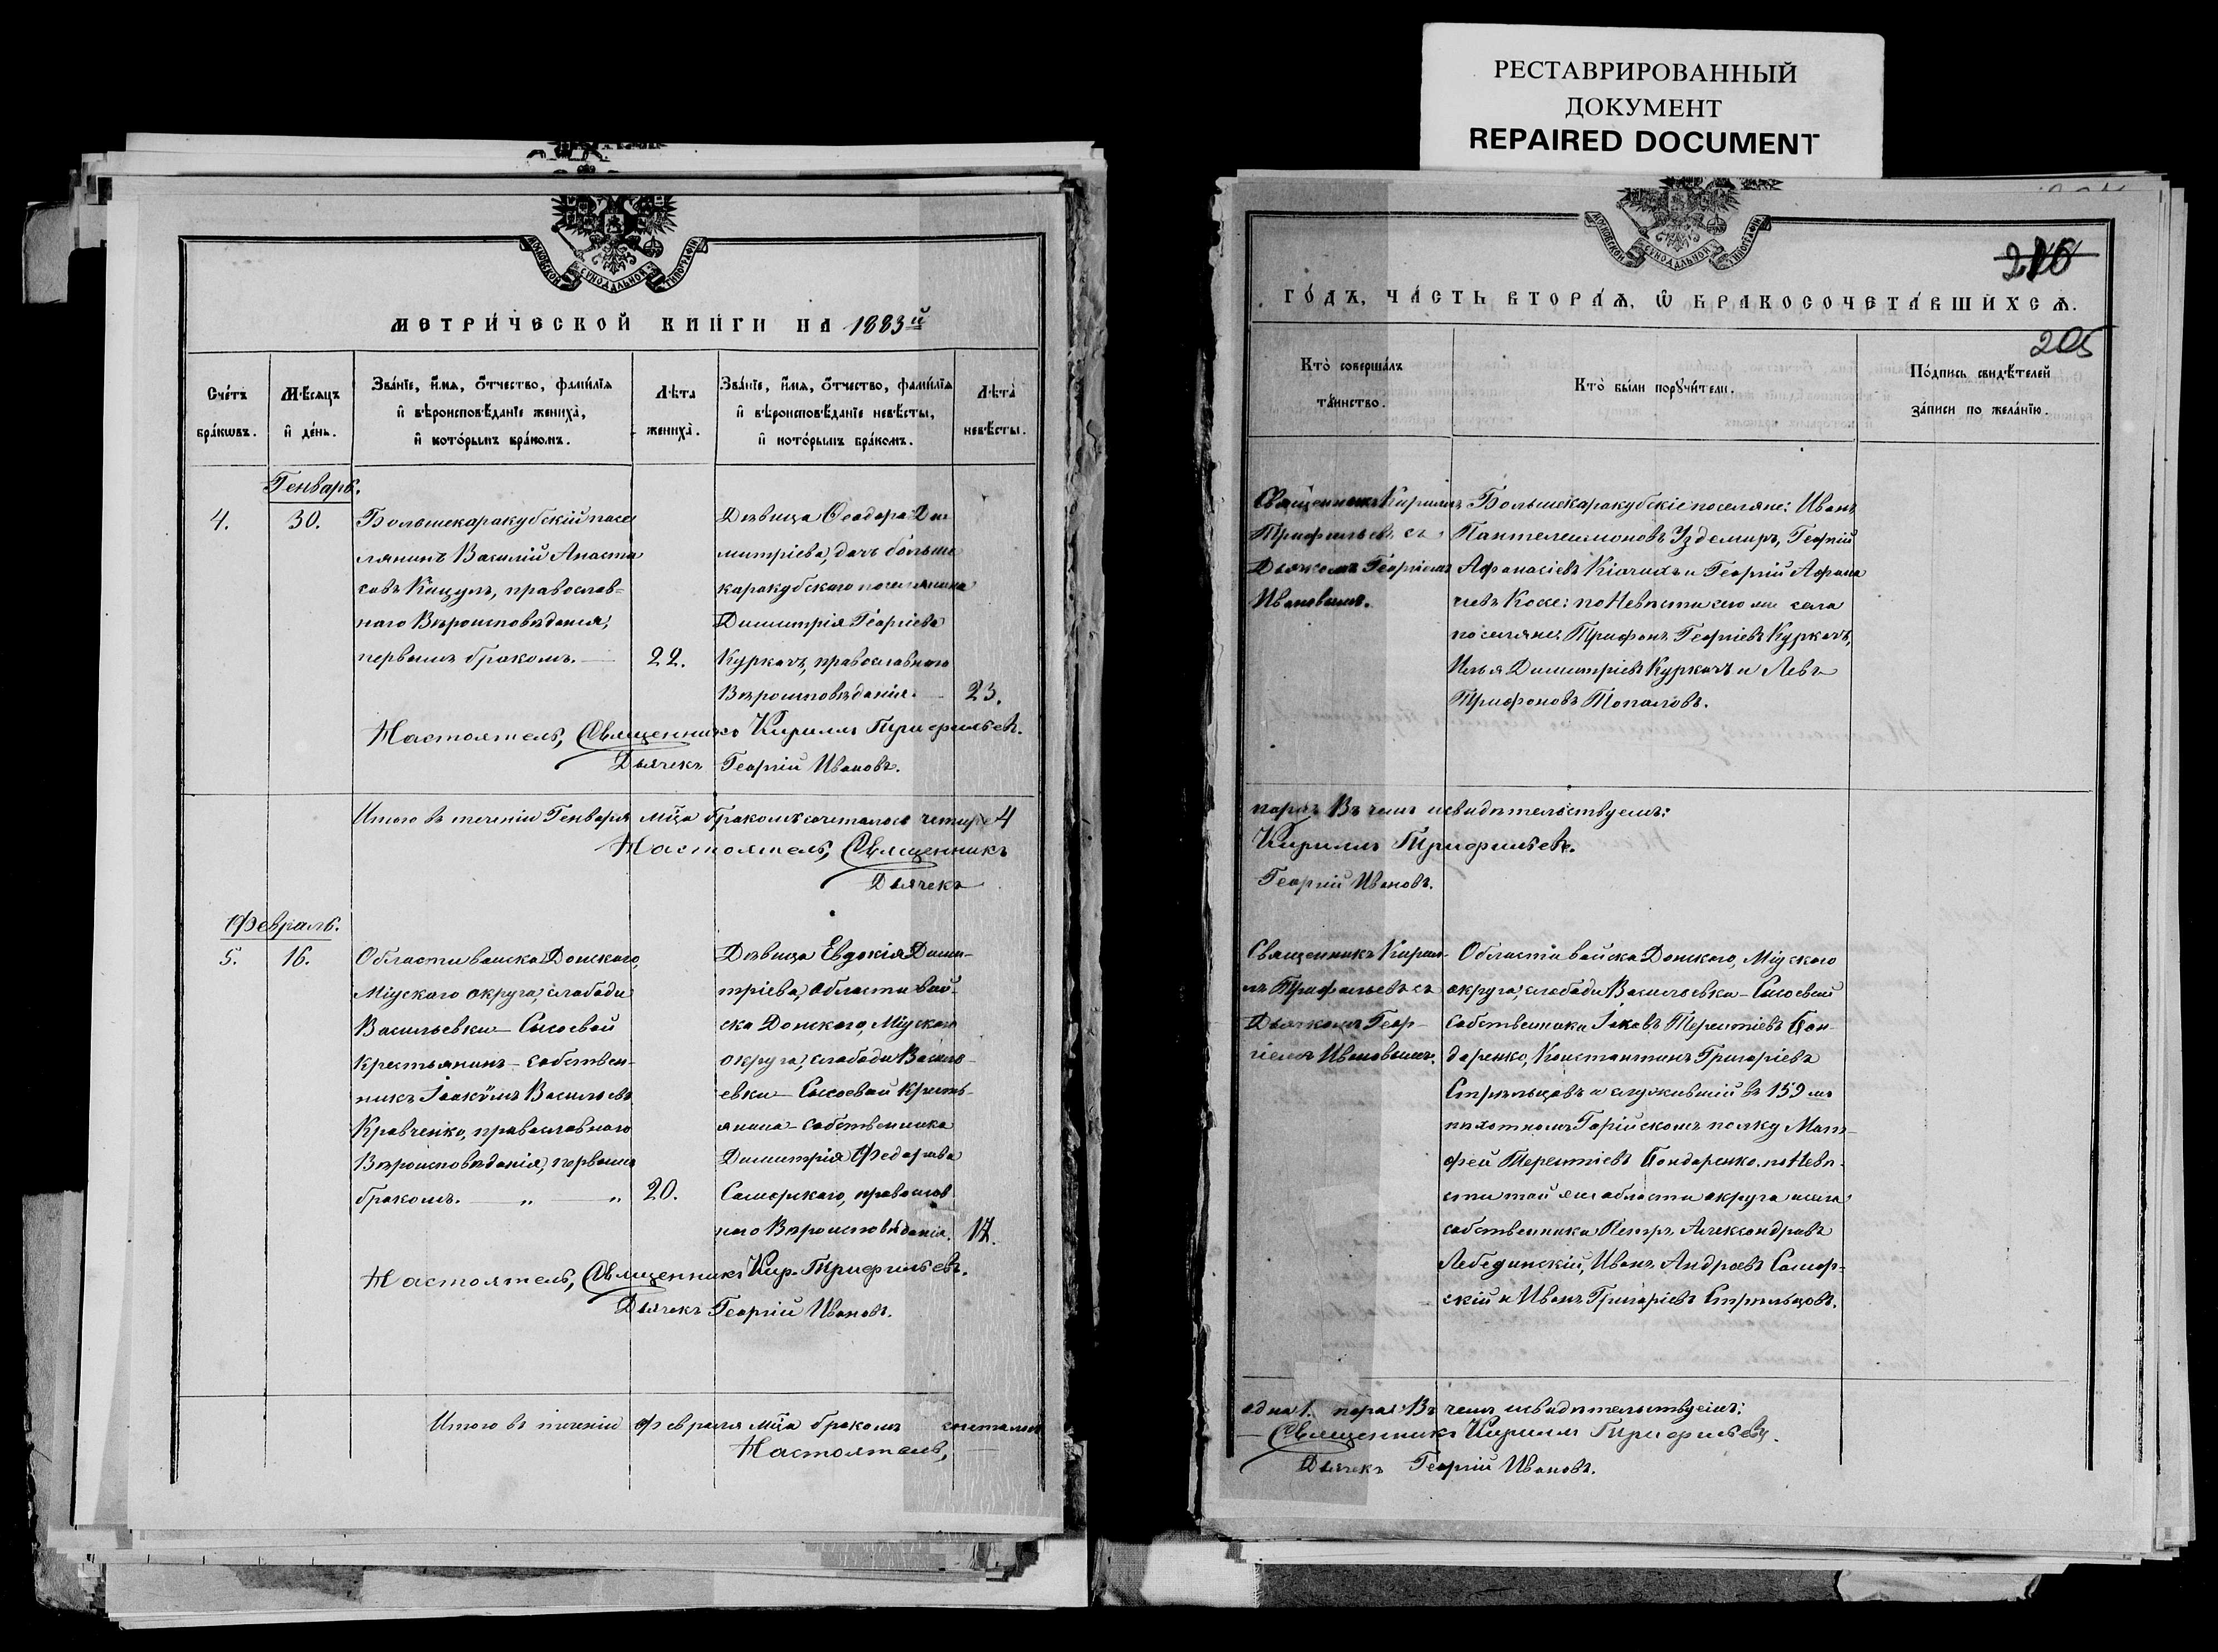 РЕСТАВРИРОВАННЫЙ
ДОКУМЕНТ
REPAIRED DOCUMENT
МОСКОВСКОЙ СѴНОДАЛЬНОЙ ТИПОГРАФІИ
МЕТРИ́ЧЕСКОЙ КНИГИ НА 1883й
Сче́тъ
бра́кѡвъ.
Мѣ́сяцъ
и҆ де́нь.
Зва́нїе, и҆́мя, ѻ҆́тчество, фами́лїя
и҆ вѣроисповѣ́данїе жениха̀,
и҆ кото́рымъ бра́комъ.
Лѣ́та
жениха̀.
Зва́нїе, и҆́мя, ѻ҆́тчество, фами́лїя
и҆ вѣроисповѣ́данїе невѣ́сты,
и҆ кото́рымъ бра́комъ.
Лѣта̀
невѣ́сты.
Генварь.
4.
30.
Большекаракубскій посе
лянинъ Василій Анаста
совъ Кацупъ, православ=
наго Вѣроисповѣданія,
первымъ бракомъ.
22.
Дѣвица Ѳеодора Ди
митріева, дочь больше
каракубского поселянина
Димитрія Георгіева
Куркачъ, православного
Вѣроисповѣданія.
23.
Настоятель, Священникъ Кириллъ Трифильевъ.
Дьячекъ Георгій Ивановъ.
Итого въ теченіи Генваря мца бракомъ сочеталось четыре 4
Настоятель, Священникъ
Дьячекъ
Февраль.
5.
16.
Области войска Донского,
Міускаго округа, слободы
Васильевки-Сысоевой
крестьянинъ-собствен-
никъ Іоакимъ Васильевъ
Кравченко, православнаго
Вѣроисповѣданія, первымъ
бракомъ. — „ — „
20.
Дѣвица Евдокія Дими-
тріева, Области вой-
ска Донского, Міускаго
округа, слободы Василь-
евки-Сысоевой кресть-
янина-собственника
Димитрія Федорова
Саморскаго, православ
наго Вѣроисповѣданія.
17.
Настоятель, Священникъ Кир. Трифильевъ.
Дьячекъ Георгій Ивановъ.
Итого въ теченіи Февраля мца бракомъ сочеталось
Настоятель,
МОСКОВСКОЙ СѴНОДАЛЬНОЙ ТИПОГРАФІИ
216
ГО́ДЪ, ЧА́СТЬ ВТОРА́Ѧ, Ѡ҆ БРАКОСОЧЕТА́ВШИХСѦ.
205
Кто̀ соверша́лъ
та́инство.
Кто̀ бы́ли порꙋчи́тели.
По́дпись свидѣ́телей
за́писи по жела́нїю.
Священникъ Кириллъ
Трифильевъ съ
Дьячкомъ Георгіемъ
Ивановымъ.
Большекаракубскіе поселяне: Иванъ
Пантелеимоновъ Уздемиръ, Георгій
Афанасіевъ Кіачихъ и Георгій Афана
сіевъ Косе: по Невѣсти сего же села
поселяне: Трифонъ Георгіевъ Куркачъ,
Илья Димитріевъ Куркачъ и Левъ
Трифоновъ Топаловъ.
паръ. Въ чемъ и свидѣтельствуемъ:
Кириллъ Трифильевъ.
Георгій Ивановъ.
Священникъ Кирил-
лъ Трифильевъ съ
Дьячкомъ Геор-
гіемъ Ивановымъ.
Области войска Донского, Міускаго
округа, слободы Васильевки-Сысоевой
собственники Іаковъ Терентіевъ Бон-
даренко, Константинъ Григоріевъ
Стрѣльцовъ и служившій въ 159мъ
пѣхотномъ Гурійскомъ полку Мат-
фей Терентіевъ Бондаренко. по Невѣ-
сти той же области округа и села
собственники Петръ Александровъ
Лебединскій, Иванъ Андреевъ Самор=
скій и Иванъ Григоріевъ Стрѣльцовъ.
одна 1. пара. Въ чемъ и свидѣтельствуемъ:
Священникъ Кириллъ Трифильевъ.
Дьячекъ Георгій Ивановъ.